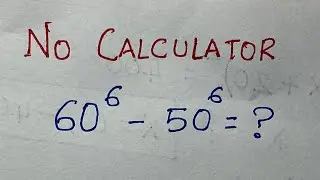 NO CALCULATOR
60⁶ - 50⁶ = ?